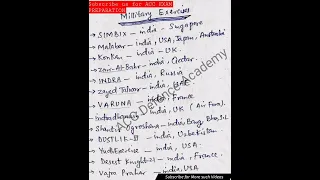 Subscribe us for ACC EXAM
PREPARATION
Military Exercises
→ SIMBIX - india - Singapore
→ Malabar - india, USA, Japan, Australia
→ Konkan - india - UK.
→ Zair-Al-Bahr - india, Qectar.
→ INDRA - india, Russia
→ Zayed Talwar - india,
→ VARUNA - india, France
→ india, UK (Air Force).
→ Shantir Ogroshena - india, Bang, Bhu, S.L
→ DUSTLIK-II - india, Uzbekistan
→ YudhExercise - india, USA.
→ Desert Knight-21 - india, France.
→ Vajra Prahar - india, USA
ACC Defence Academy
Subscribe for More such Videos